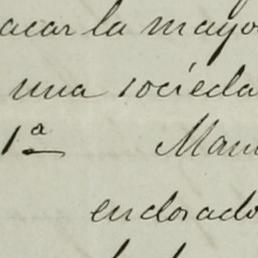 acar la mayo
una socieda
1ª Man
endosado